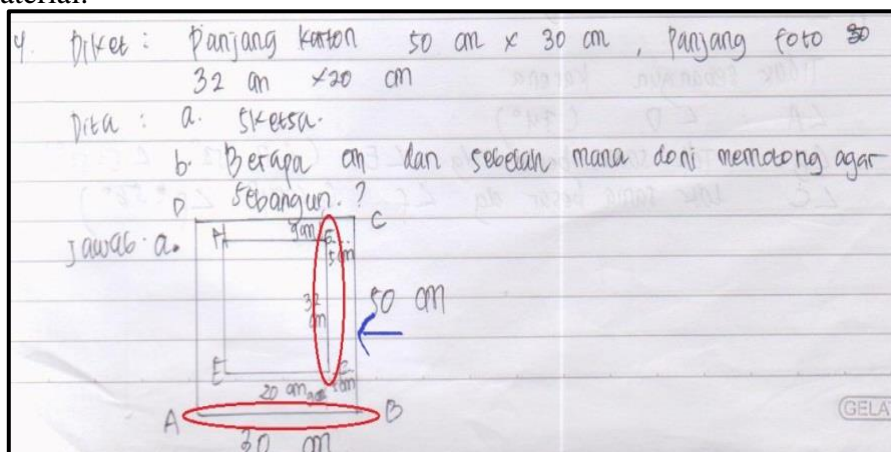 material.
4. Diket : Panjang karton 50 cm x 30 cm , Panjang foto
32 cm x20 cm
Dita : a. Sketsa.
b. Berapa cm dan sebelah mana doni memotong agar
sebangun. ?
D C
Jawab a. H 9cm G
5cm
32 cm 50 cm
E F
20 cm
A B
30 cm
GELA